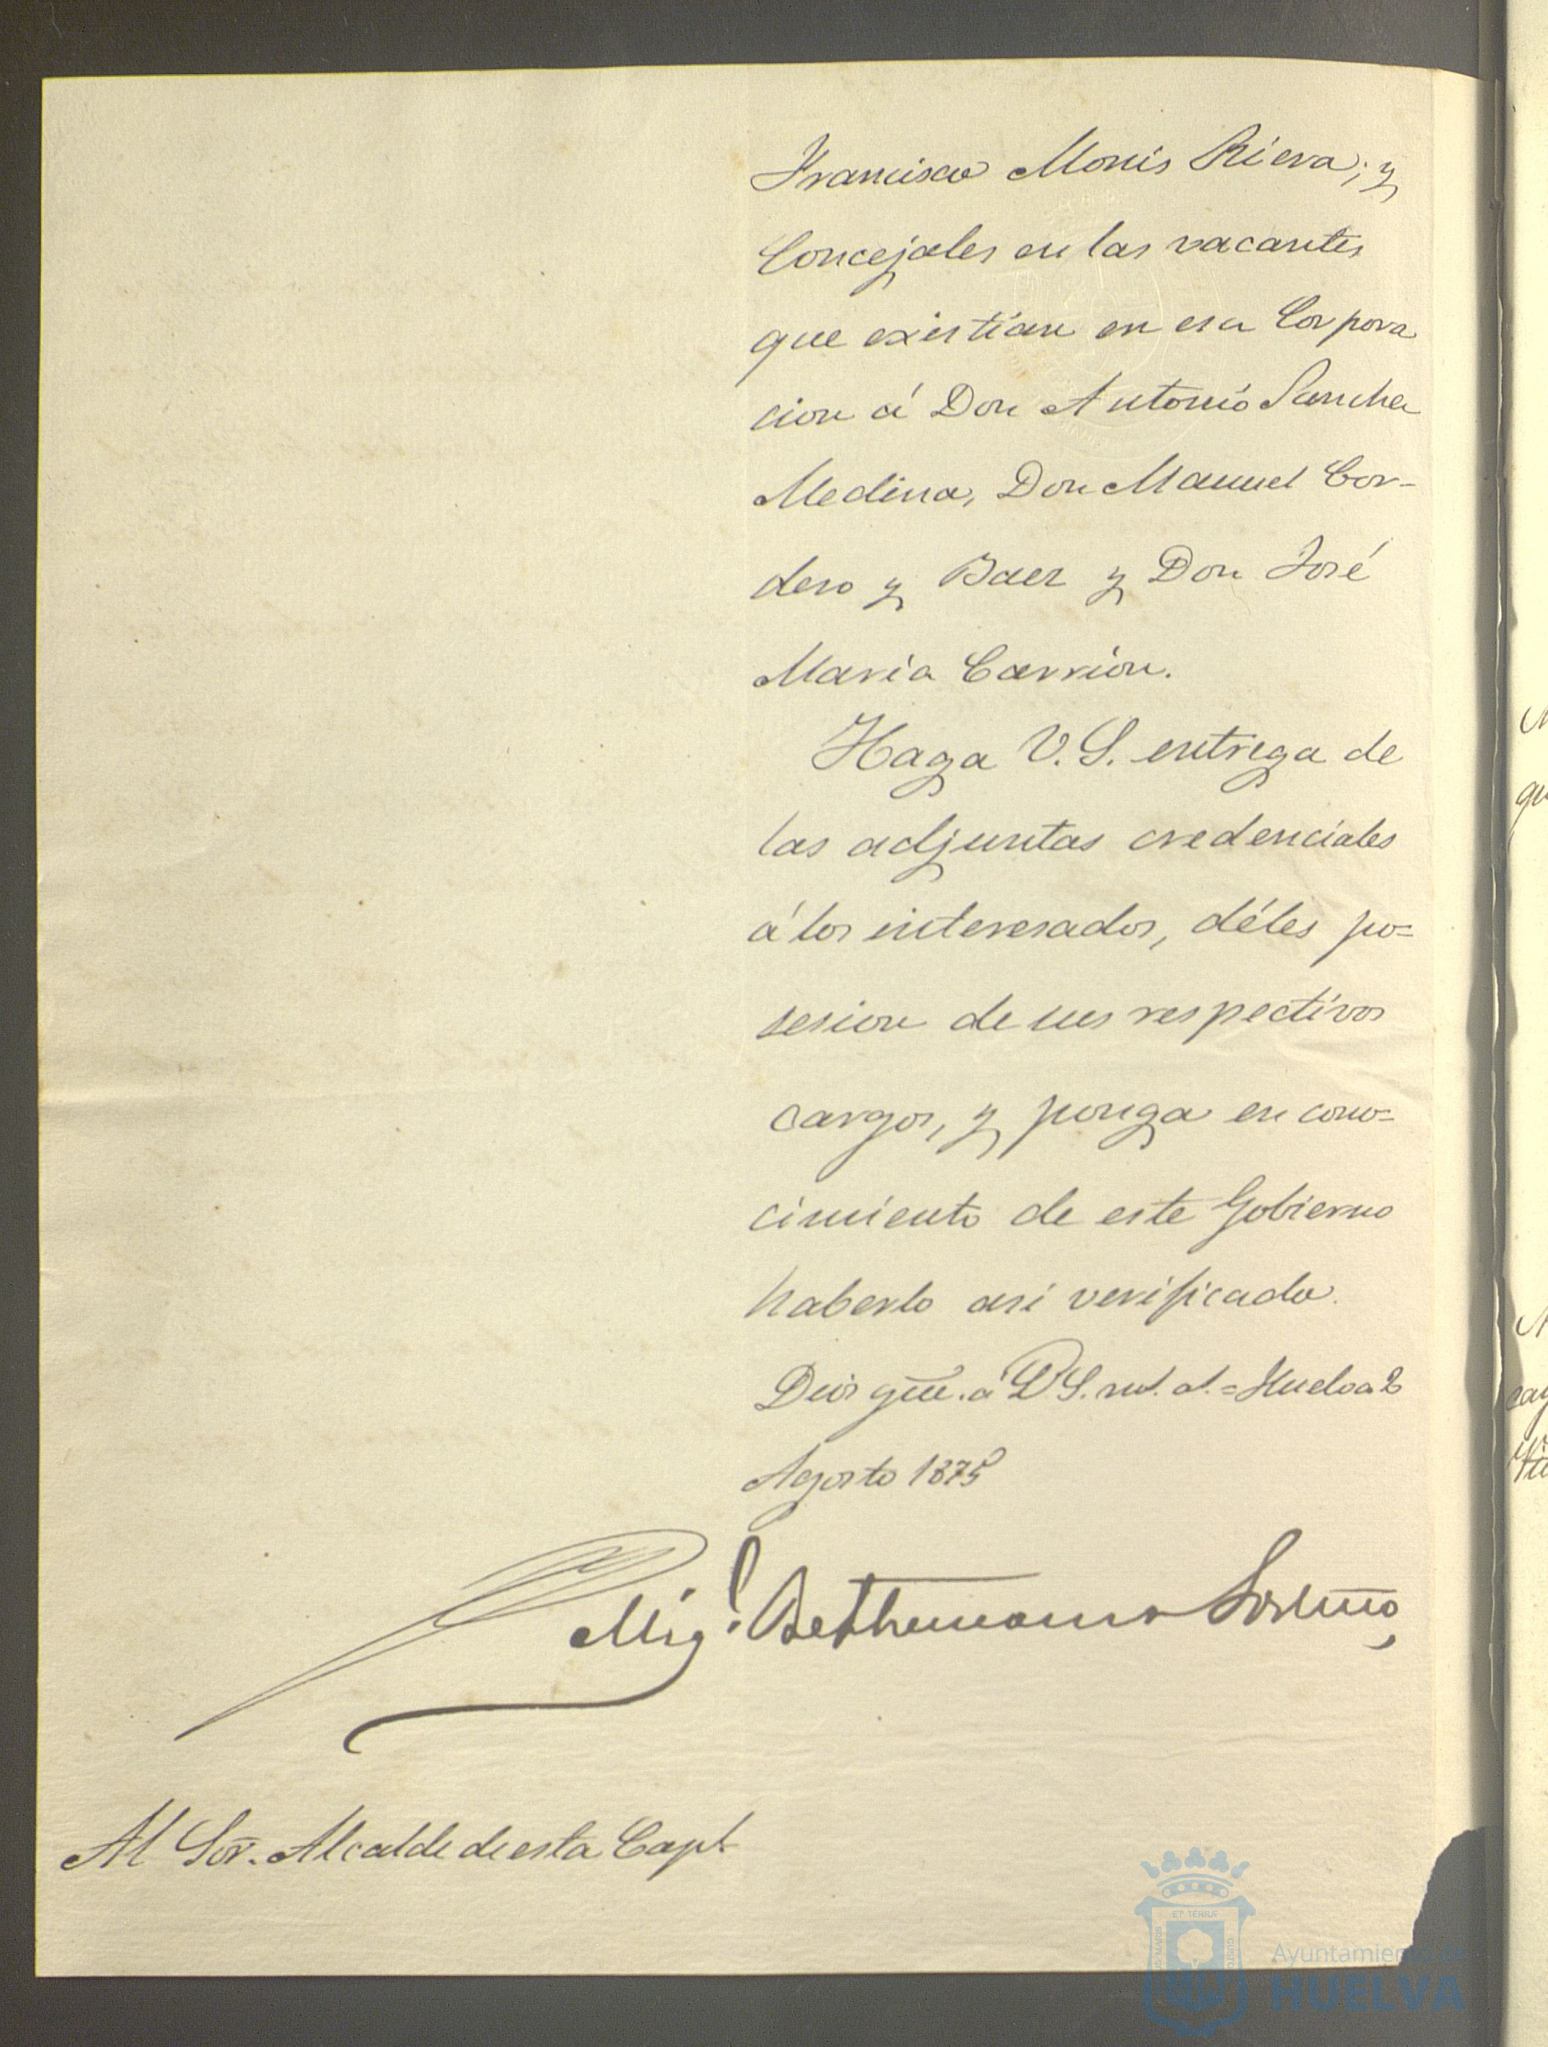 Francisco Monis Riera; y
Concejales en las vacantes
que existian en esa Corpora
cion á Don Antonio Sanchez
Medina, Don Manuel Cor-
dero y Baez y Don José
Maria Carrion.
Haga V. S. entrega de
las adjuntas credenciales
á los interesados, déles po=
sesion de sus respectivos
cargos, y ponga en cono=
cimiento de este Gobierno
haberlo asi verificado.
Dios gūe. á V S. m.s a.s = Huelva 2
Agosto 1875
Mig.l Bethemcourt
Al Sōr. Alcalde de esta Capl
Ayuntamiento de
HUELVA